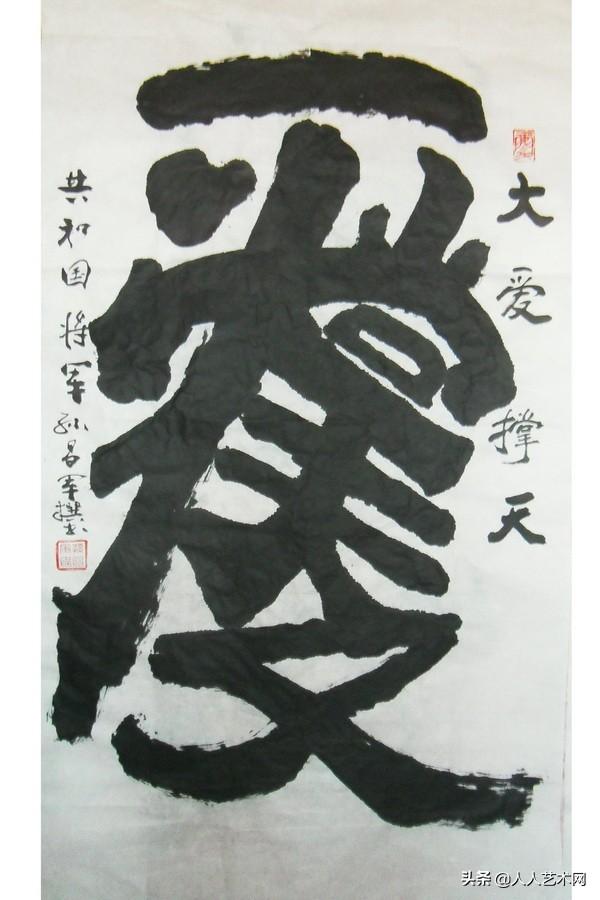 大爱撑天
共和国将军孙昌军撰
头条 @人人艺术网